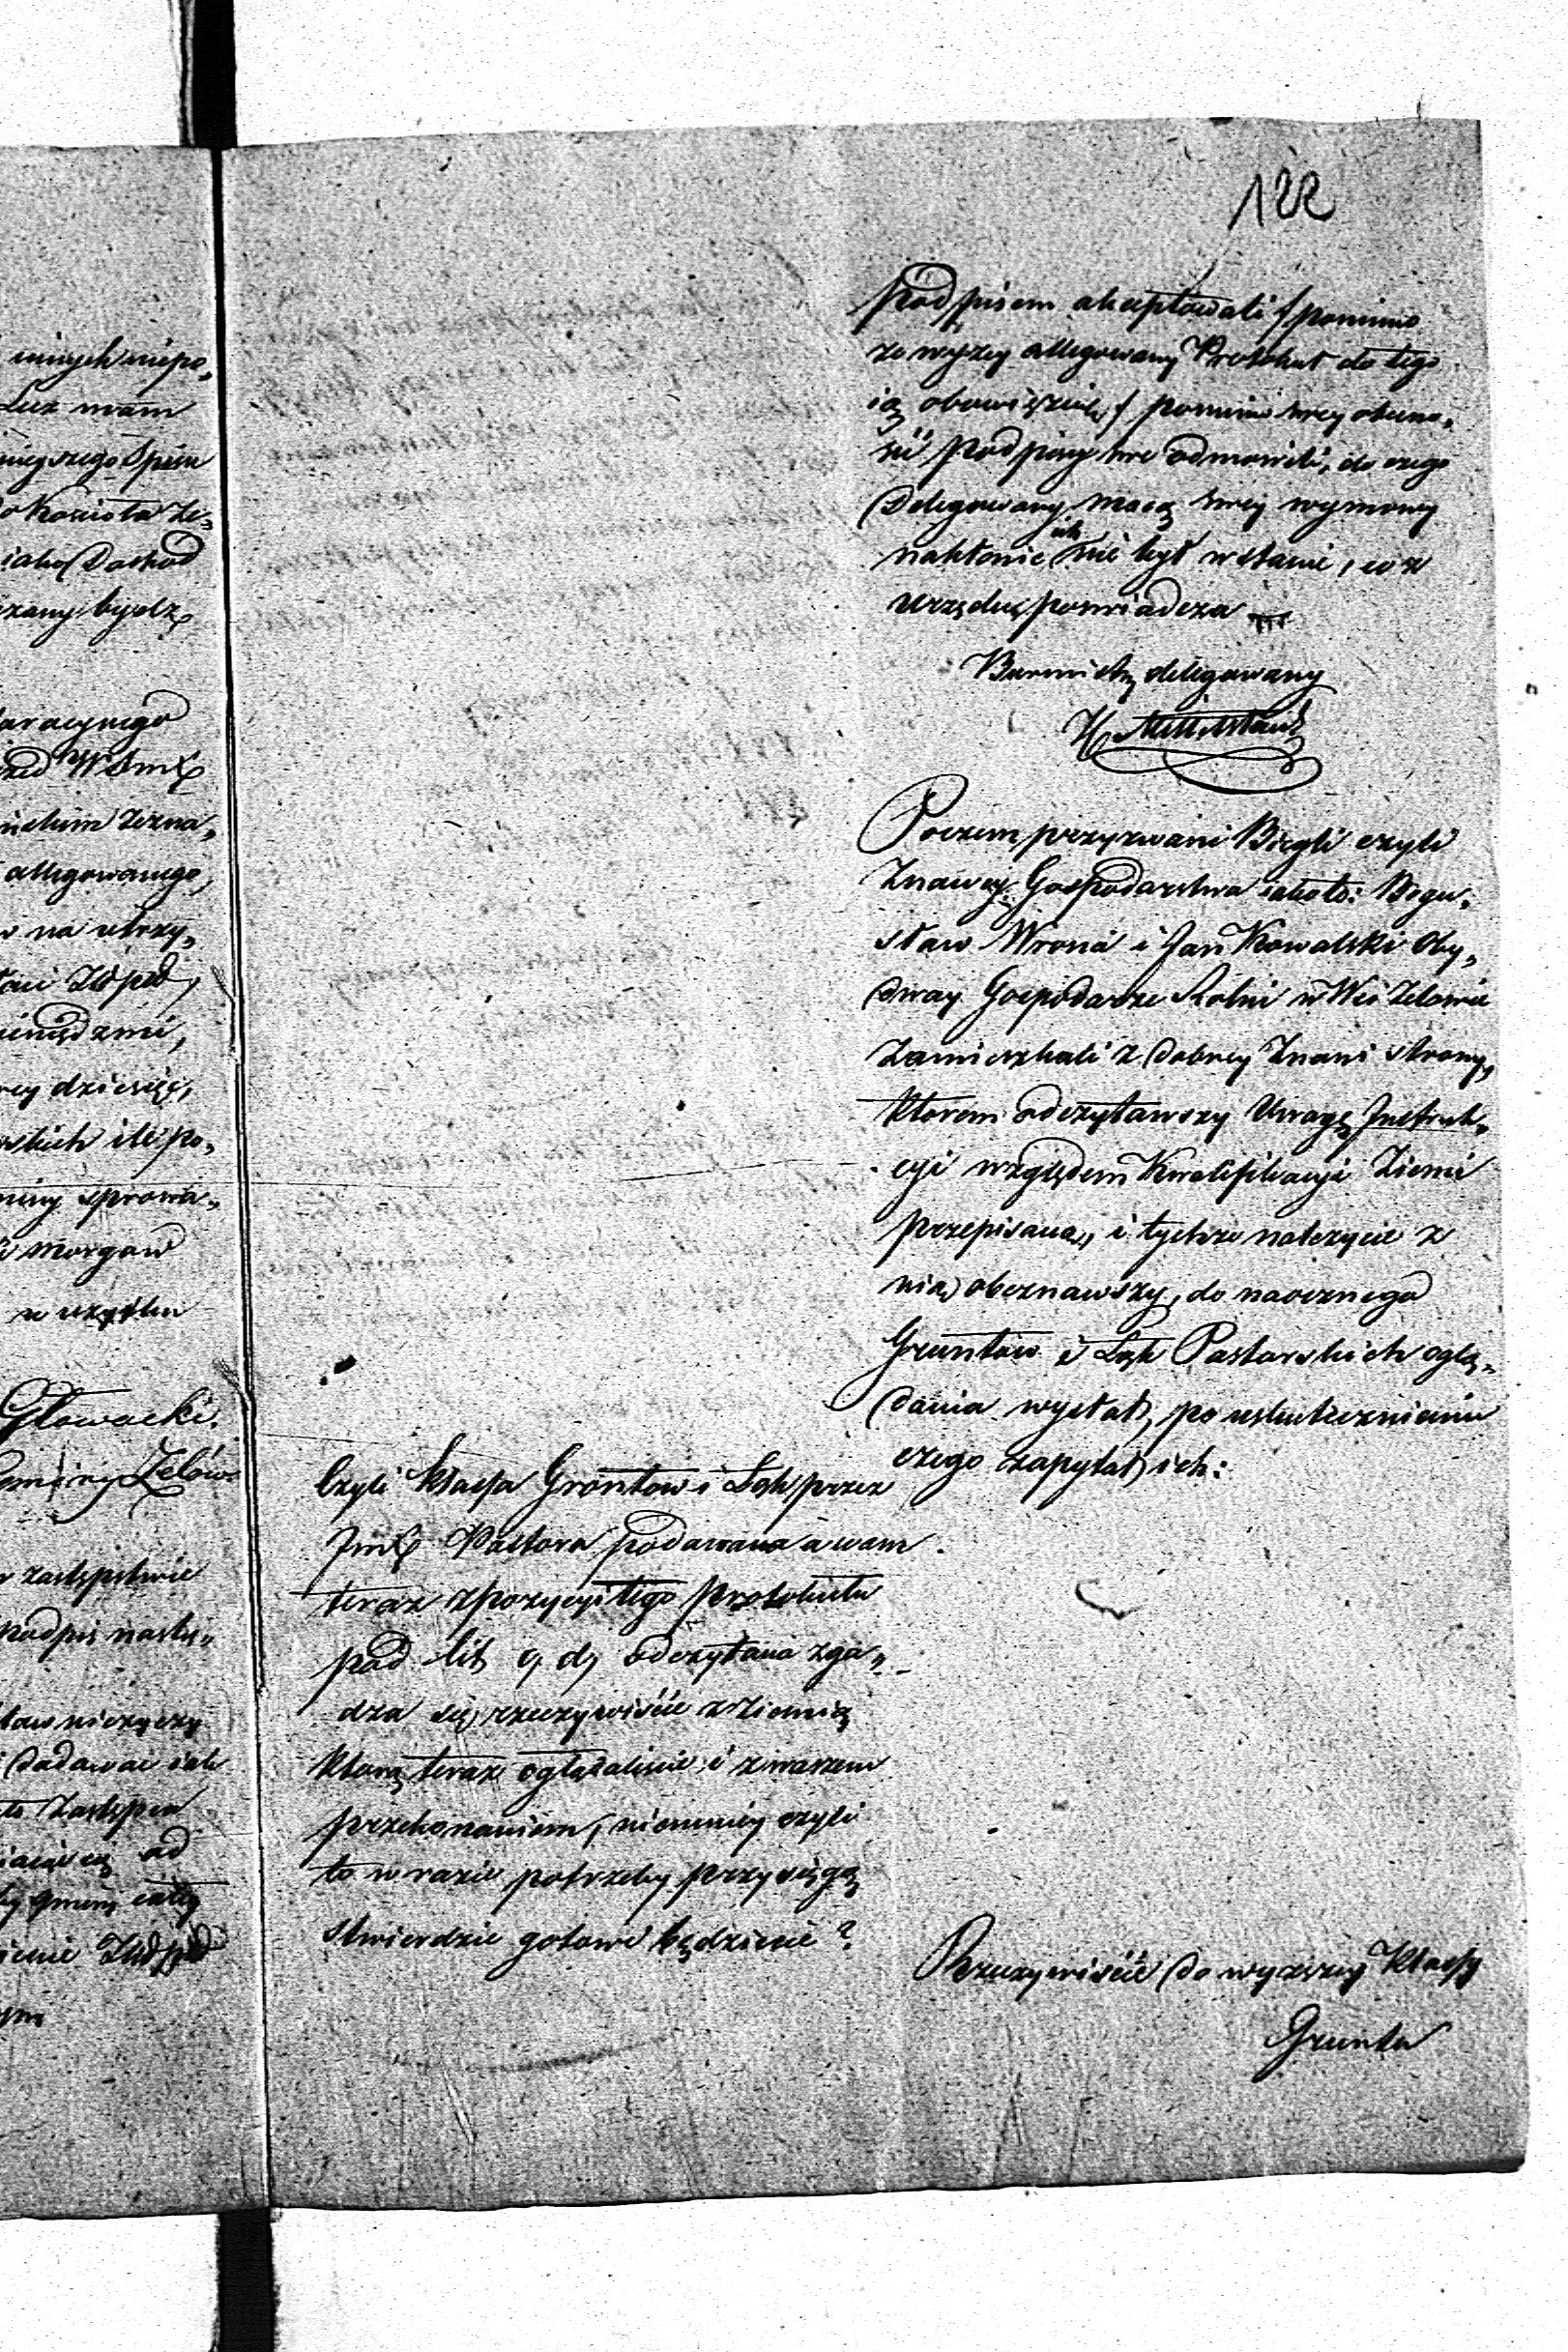 122
podpisem akceptowali / pomimo
że wyżey allegowany Protokuł do tego
ią obowięzuie / pomimo swey obecno„
ści, podpisy swe odmowili, do czego
Delegowany macą swey wymowy
nakłonic ich nie był w stanie, co z
urzędu poswiadcza
Burmistrz delegowany
Poczem przyzwani Biegli czyli
Znawcy Gospodarstwa iakoto: Bogu„
sław Wrona i Jan Kowalski Oby„
dway Gospodarze Rolni w Wsi Zelowie
Zamieszkali z dobrey Znani strony,
ktorem odczytawszy Uwagę Instruk„
cyi względem Kwalifikacyi Ziemi
przepisaną, i tychże należycie z
nią obeznawszy, do naocznego
Gruntów i Łąk Pastorskich oglą„
dania wysłał, po uskutecznieniu
czego zapytał ich:
Czyli klassa Grontow i Łąk przez
Jmć Pastora podawana a wam
teraz z pozycyi tego protokułu
pod lit c, d, odczytana zga„
dza się rzeczywiście z Ziemią
ktorą teraz oglądaliscie i z waszem
przekonaniem, niemniey czyli
to w razie potrzeby przysięgą
stwierdzic gotowi będziecie?
Rzeczywiście do wyższey Klassy
Grunta
innych niepo„
Lecz mam
nieyszego Spisu
do Kościoła Ze„
iako Dochod
bydz
allegowanego,
na utrzy„
pieniędzmi,
rey dziesięć,
ile po„
sprowa„
morgow
w użytku
Głowacki.
Gminy Zelów
w zastępstwie
podpis nastę„
dodawac iak
Zastępca
od
gminy całey